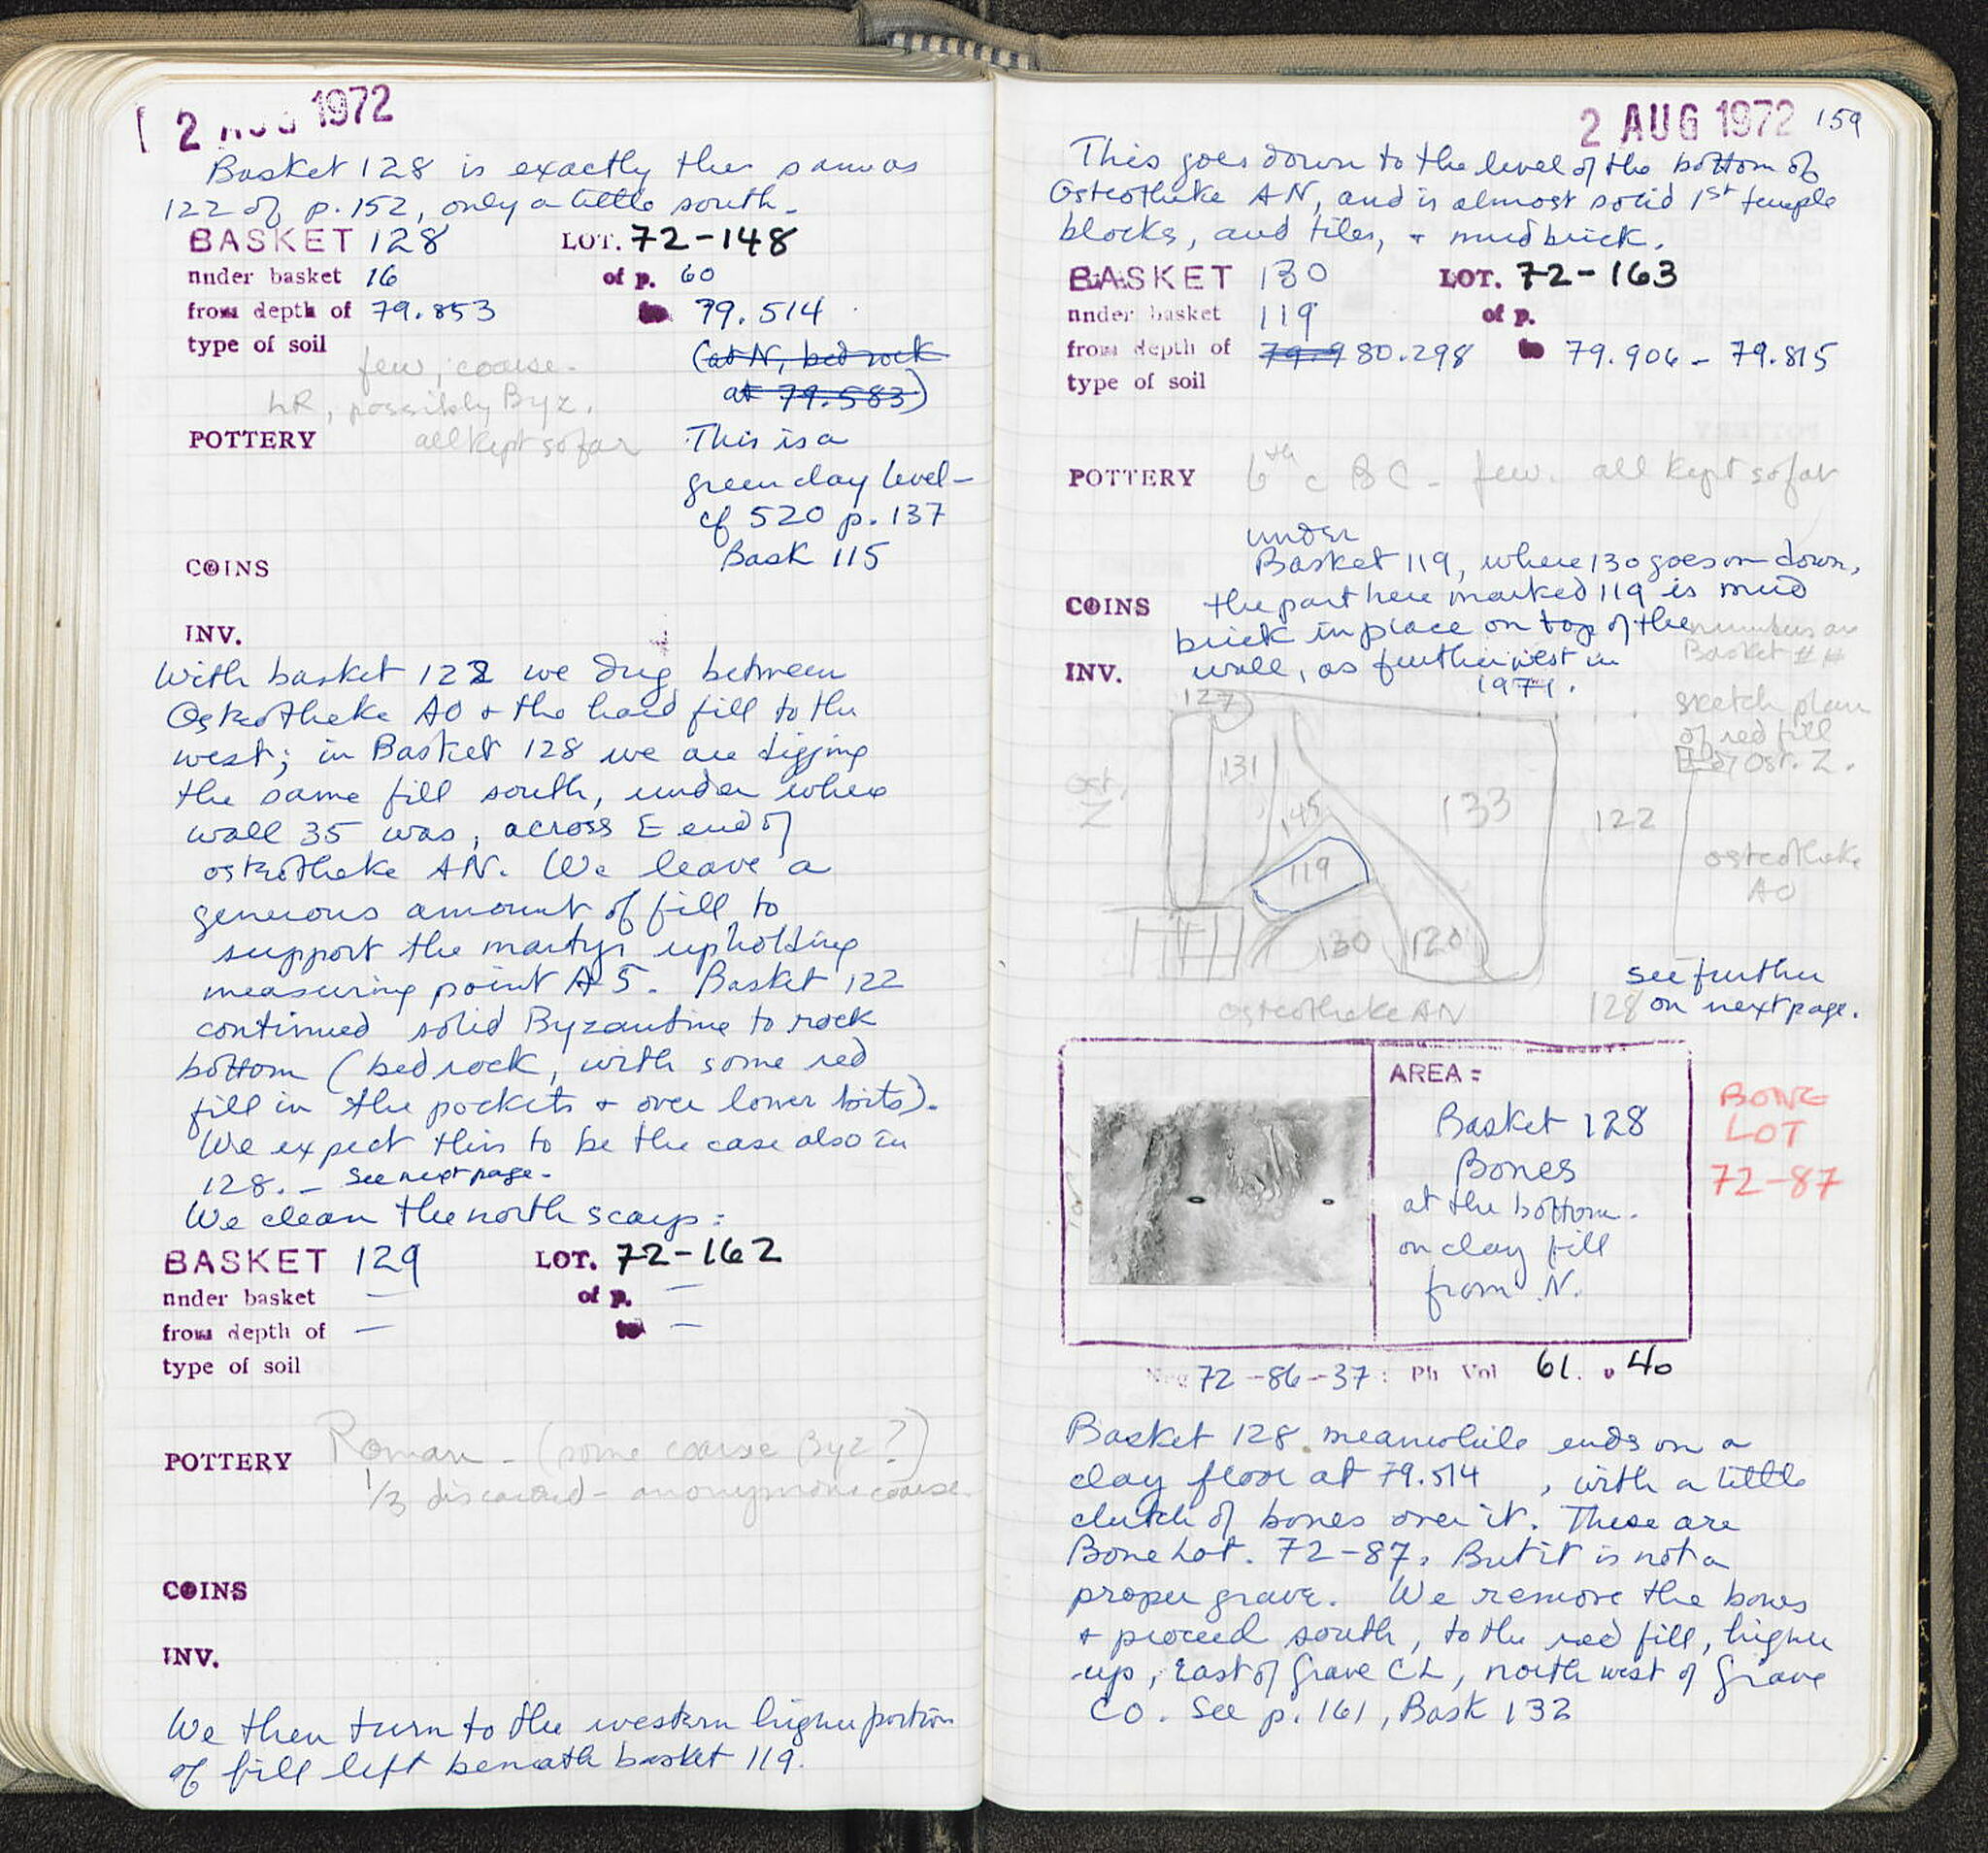 2 AUG 1972
Basket 128 is exactly the same as
122 of p. 152, only a little south.
BASKET 128 LOT. 72-148
under basket 16 of p. 60
from depth of 79.853 to 79.514
type of soil (at N, bedrock
at 79.583)
few, coarse.
LR, possibly Byz.
POTTERY all kept so far
This is a
green clay level -
cf 520 p. 137
Bask 115
COINS
INV.
With basket 122 we dug between
Osteotheke AO + the hard fill to the
west; in Basket 128 we are digging
the same fill south, under where
wall 35 was, across E end of
osteotheke AN. We leave a
generous amount of fill to
support the martyr upholding
measuring point A5. Basket 122
continued solid Byzantine to rock
bottom (bedrock, with some red
fill in the pockets + over lower bits).
We expect this to be the case also in
128. - See next page -
We clean the north scarp:
BASKET 129 LOT. 72-162
under basket — of p. —
from depth of — to —
type of soil
POTTERY Roman - (some coarse Byz?)
1/3 discarded - anonymous coarse.
COINS
INV.
We then turn to the western higher portion
of fill left beneath basket 119.
2 AUG 1972 159
This goes down to the level of the bottom of
Osteotheke AN, and is almost solid 1st temple
blocks, and tiles, + mudbrick.
BASKET 130 LOT. 72-163
under basket 119 of p.
from depth of 79.9 80.298 to 79.906 - 79.815
type of soil
POTTERY 6th c BC - few. all kept so far
under
Basket 119, where 130 goes on down,
COINS the part here marked 119 is mud
brick in place on top of the
INV. wall, as further west in
1971.
numbers are
Basket ##
sketch plan
of red fill
E of Ost. Z.
127
131
Ost.
Z
145
133
122
119
osteotheke
AO
130
120
osteotheke AN
128
see further
on next page.
AREA =
Basket 128
Bones
at the bottom.
on clay fill
from N.
BONE
LOT
72-87
Neg 72-86-37 : Ph Vol 61. p 40
Basket 128 meanwhile ends on a
clay floor at 79.514, with a little
clutch of bones over it. These are
Bone Lot. 72-87. But it is not a
proper grave. We remove the bones
+ proceed south, to the red fill, higher
up, East of Grave CL, northwest of Grave
CO. See p. 161, Bask 132